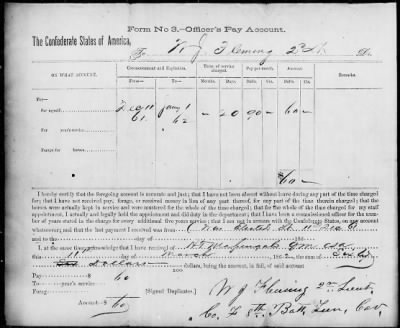 Form No 3.—Officer's Pay Account.
The Confederate States of America,
To W J Fleming 2d Lt Dr.
ON WHAT ACCOUNT. Commencement and Expiration. Time of service charged. Pay per month. Amount. Remarks.
From— To— Months. Days. Dolls. Cts.
Pay—
For myself, Dec 11 Jany 1 — 20 90 — 60 —
61 62
For years' service,
Forage for horses,
$60 —
I hereby certify that the foregoing account is accurate and just; that I have not been absent without leave during any part of the time charged
for; that I have not received pay, forage, or received money in lieu of any part thereof, for any part of the time therein charged; that the
horses were actually kept in service and were mustered for the whole of the time charged; that for the whole of the time charged for my staff
appointment, I actually and legally held the appointment and did duty in the department; that I have been a commissioned officer for the num-
ber of years stated in the charge for every additional five years service; that I am not in arrears with the Confederate States, on any account
whatsoever; and that the last payment I received was from (Was elected Lt 11 Dec 61
and to the day of 186
I, at the same time, acknowledge that I have received of
this 11 day of March 1862, the sum of Sixty
Dollars dollars, being the amount, in full, of said account
Pay $ 60
To year's service
Forage,
Amount $ 60
[Signed Duplicates.]
W J Fleming 2nd Lieut,
Co. F 5th Batt, Tenn, Cav